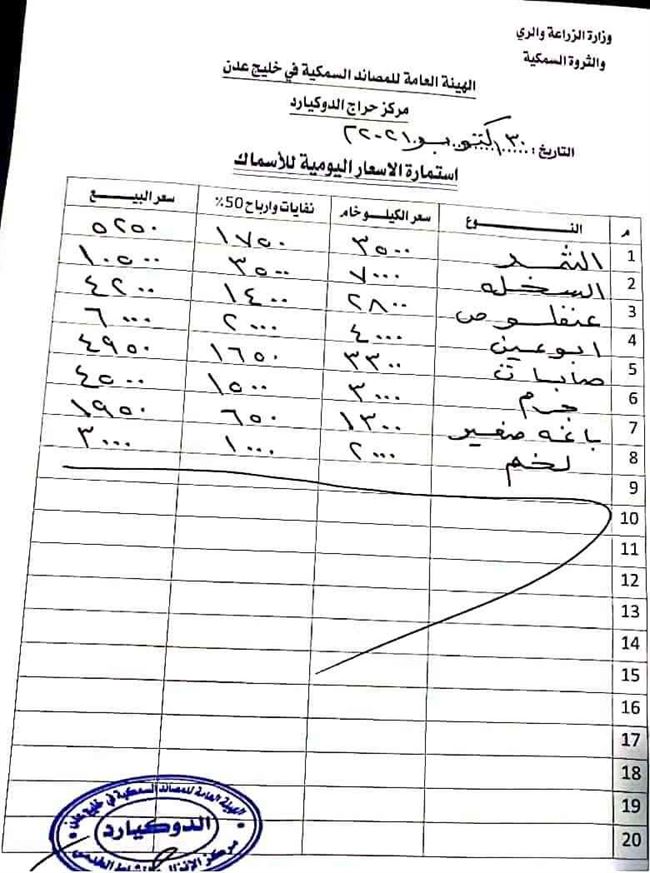 وزارة الزراعة والري
والثروة السمكية
الهيئة العامة للمصائد السمكية في خليج عدن
مركز حراج الدوكيارد
التاريخ: ٣٠ اكتوبر ٢٠٢١
استمارة الاسعار اليومية للأسماك
م النوع سعر الكيلو خام نفايات وارباح 50٪ سعر البيع
1 الثمد ٣٥٠٠ ١٧٥٠ ٥٢٥٠
2 السخله ٧٠٠٠ ٣٥٠٠ ١٠٥٠٠
3 عنفلوص ٢٨٠٠ ١٤٠٠ ٤٢٠٠
4 ابوعين ٤٠٠٠ ٢٠٠٠ ٦٠٠٠
5 ٣٣٠٠ ١٦٥٠ ٤٩٥٠
6 جرم ٣٠٠٠ ١٥٠٠ ٤٥٠٠
7 باغه صغير ١٣٠٠ ٦٥٠ ١٩٥٠
8 لخم ٢٠٠٠ ١٠٠٠ ٣٠٠٠
9
10
11
12
13
14
15
16
17
18
19
20
الهيئة العامة للمصائد السمكية في خليج عدن
الدوكيارد
مركز الإنزال